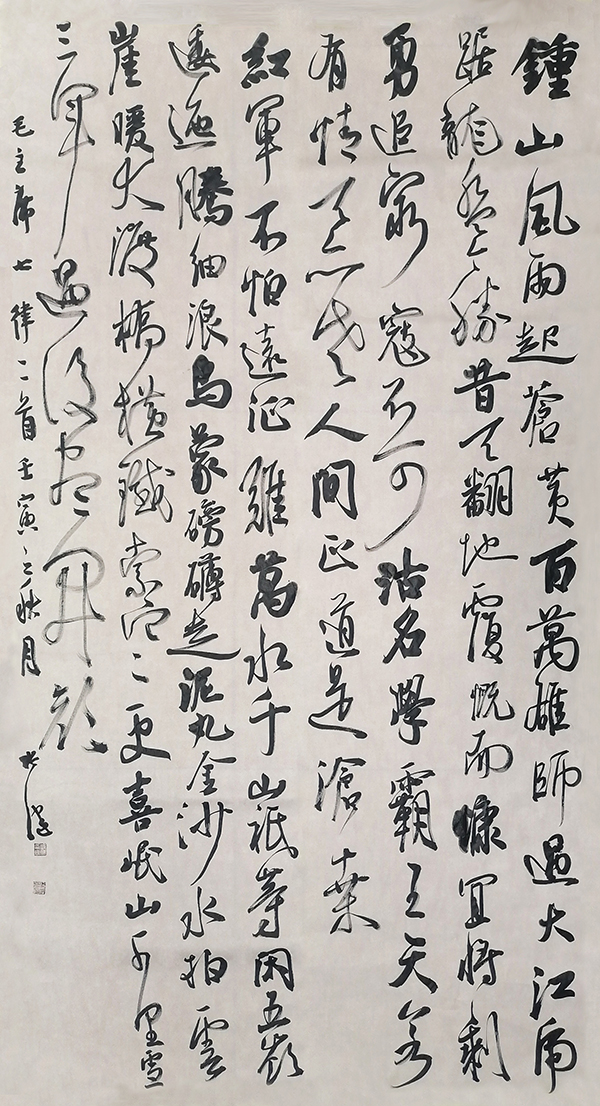 鍾山風雨起蒼黃百萬雄師過大江虎
踞龍盤今勝昔天翻地覆慨而慷宜將剩
勇追窮寇不可沽名學霸王天若
有情天亦老人間正道是滄桒
紅軍不怕遠征難萬水千山祇等閑五嶺
逶迤騰細浪烏蒙磅礴走泥丸金沙水拍雲
崖暖大渡橋橫鐵索寒更喜岷山千里雪
三軍過後盡開顏
毛主席七律二首壬寅之秋月